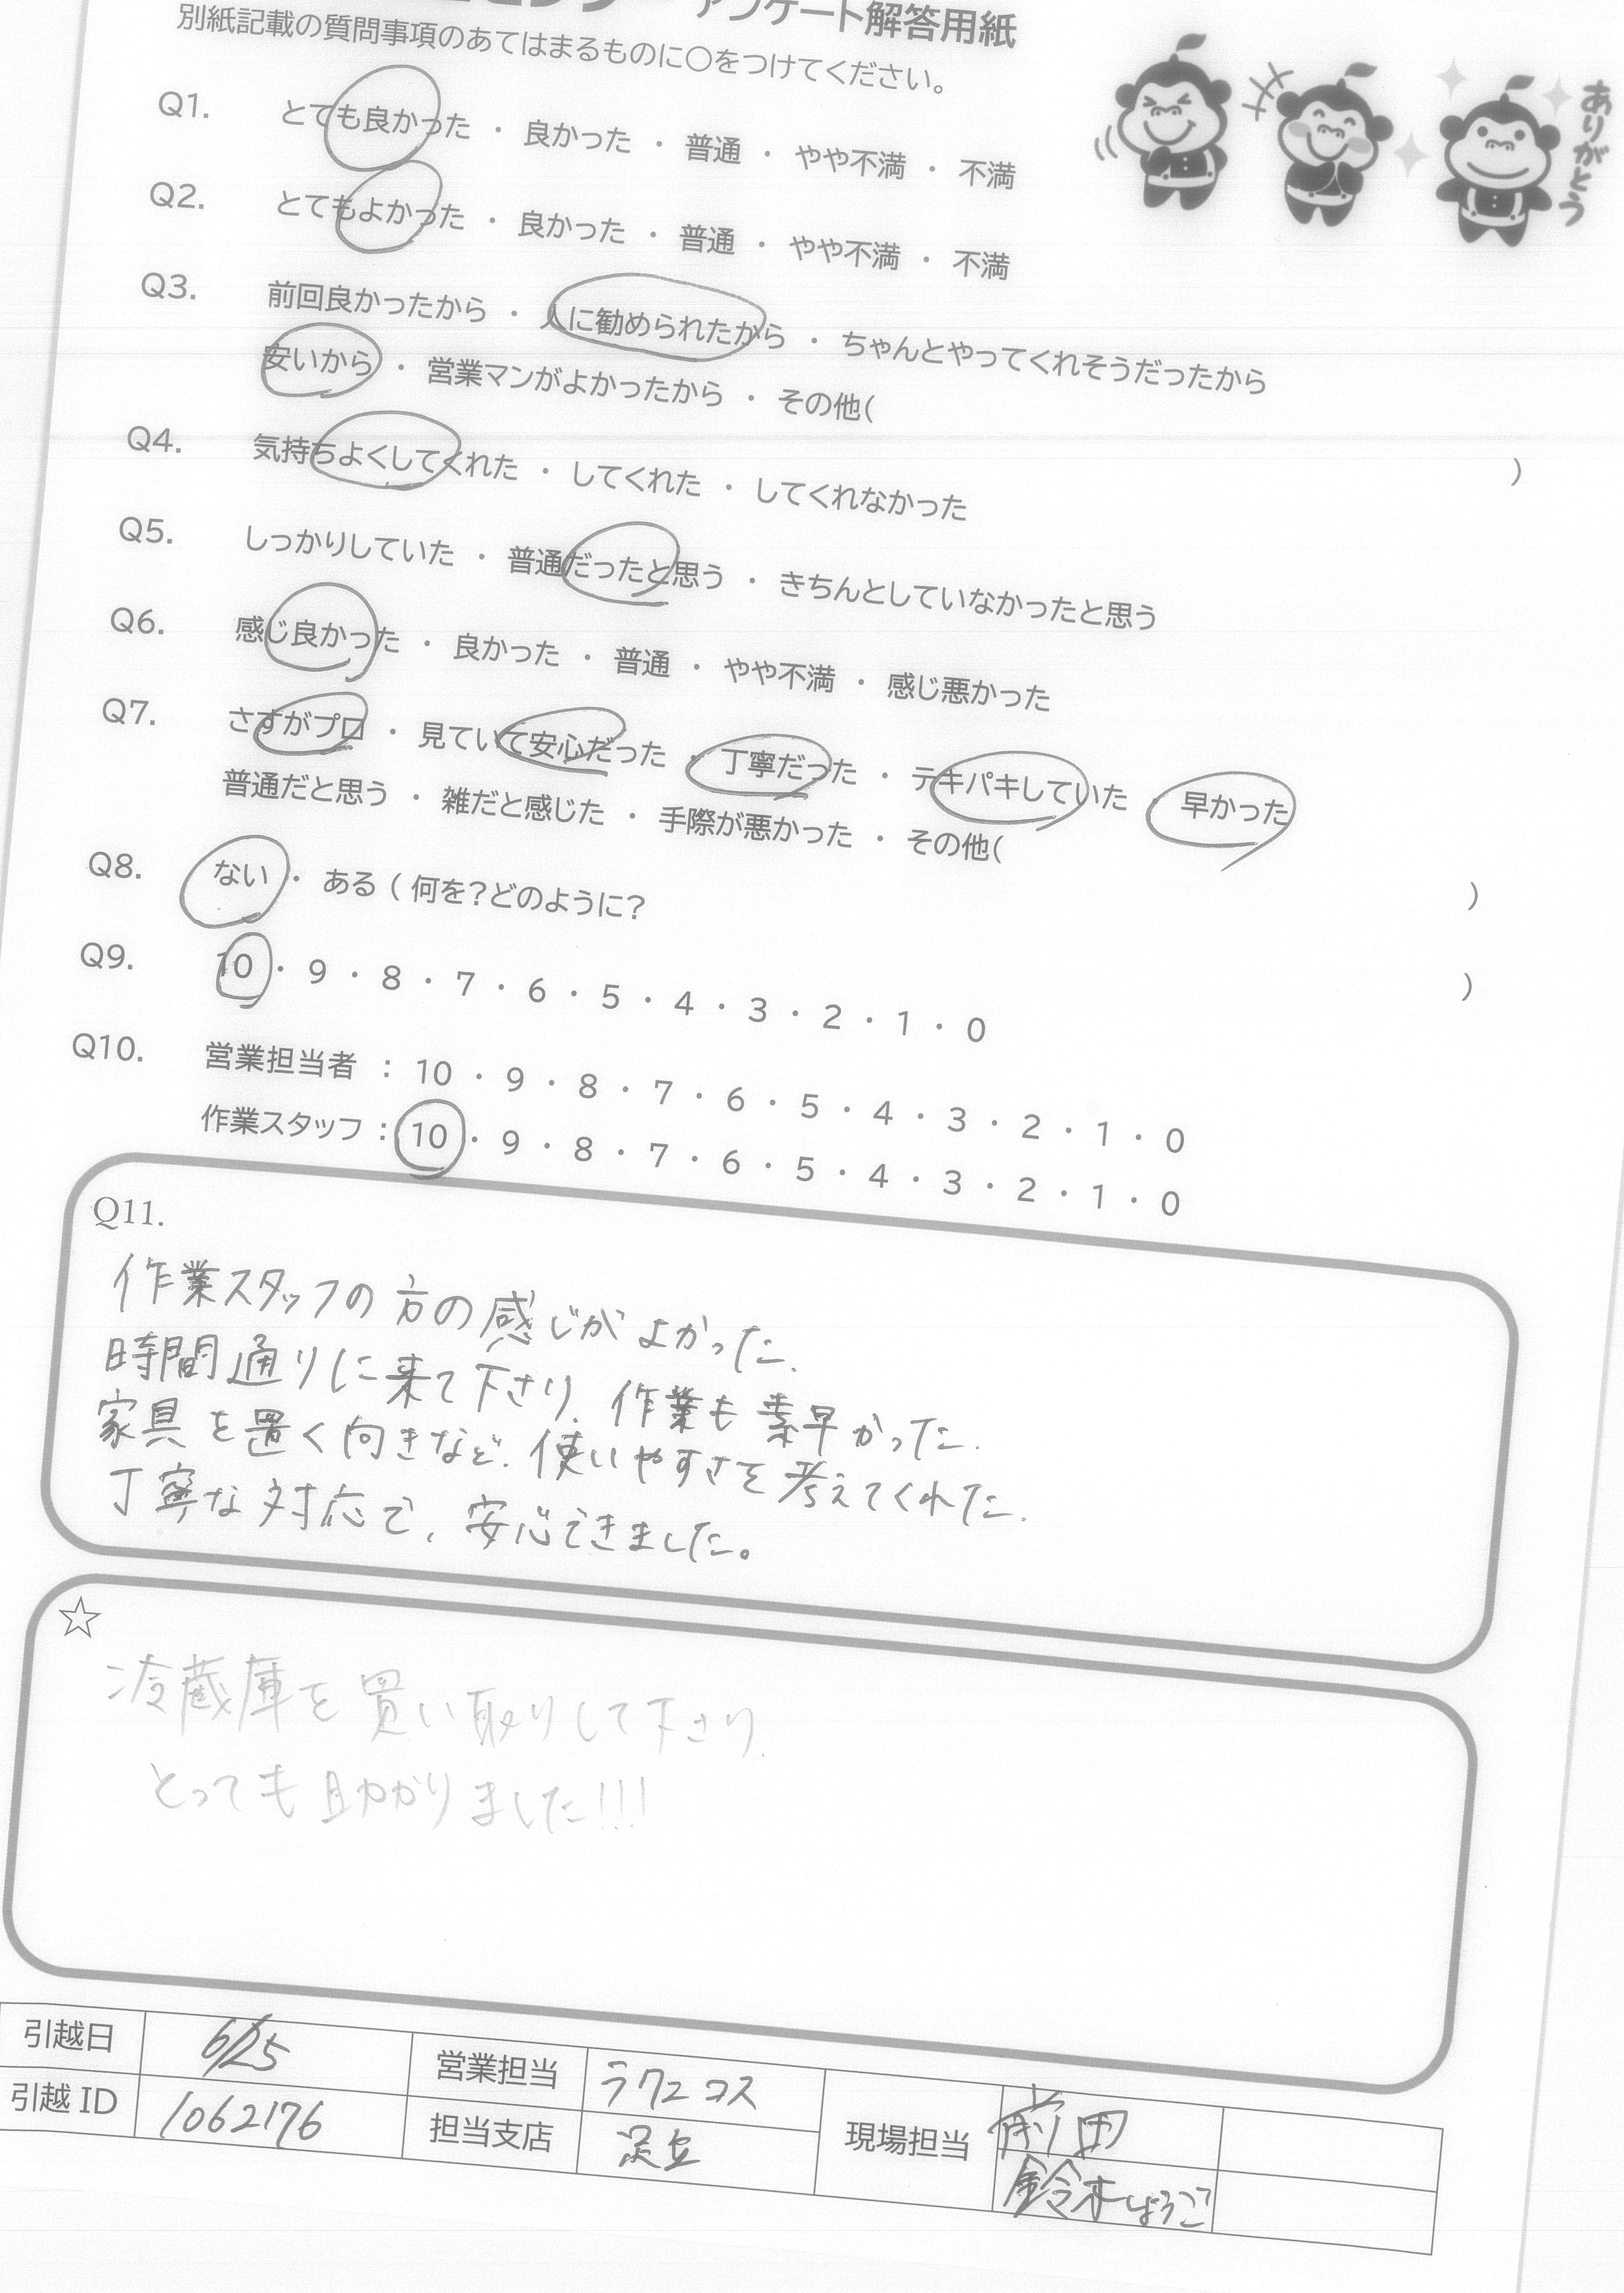 アンケート解答用紙
別紙記載の質問事項のあてはまるものに○をつけてください。
ありがとう
Q1. とても良かった ・ 良かった ・ 普通 ・ やや不満 ・ 不満
Q2. とてもよかった ・ 良かった ・ 普通 ・ やや不満 ・ 不満
Q3. 前回良かったから ・ 人に勧められたから ・ ちゃんとやってくれそうだったから
安いから ・ 営業マンがよかったから ・ その他( )
Q4. 気持ちよくしてくれた ・ してくれた ・ してくれなかった
Q5. しっかりしていた ・ 普通だったと思う ・ きちんとしていなかったと思う
Q6. 感じ良かった ・ 良かった ・ 普通 ・ やや不満 ・ 感じ悪かった
Q7. さすがプロ ・ 見ていて安心だった ・ 丁寧だった ・ テキパキしていた ・ 早かった
普通だと思う ・ 雑だと感じた ・ 手際が悪かった ・ その他( )
Q8. ない ・ ある ( 何を?どのように? )
Q9. 10 ・ 9 ・ 8 ・ 7 ・ 6 ・ 5 ・ 4 ・ 3 ・ 2 ・ 1 ・ 0
Q10. 営業担当者 : 10 ・ 9 ・ 8 ・ 7 ・ 6 ・ 5 ・ 4 ・ 3 ・ 2 ・ 1 ・ 0
作業スタッフ : 10 ・ 9 ・ 8 ・ 7 ・ 6 ・ 5 ・ 4 ・ 3 ・ 2 ・ 1 ・ 0
Q11.
作業スタッフの方の感じがよかった.
時間通りに来て下さり、作業も素早かった.
家具を置く向きなど、使いやすさを考えてくれた.
丁寧な対応で、安心できました。
☆
冷蔵庫を買い取りして下さり、
とっても助かりました!!!
引越日 6/25 営業担当 ラクエコス 現場担当 前田
引越 ID 1062176 担当支店 足立 鈴木しょうご